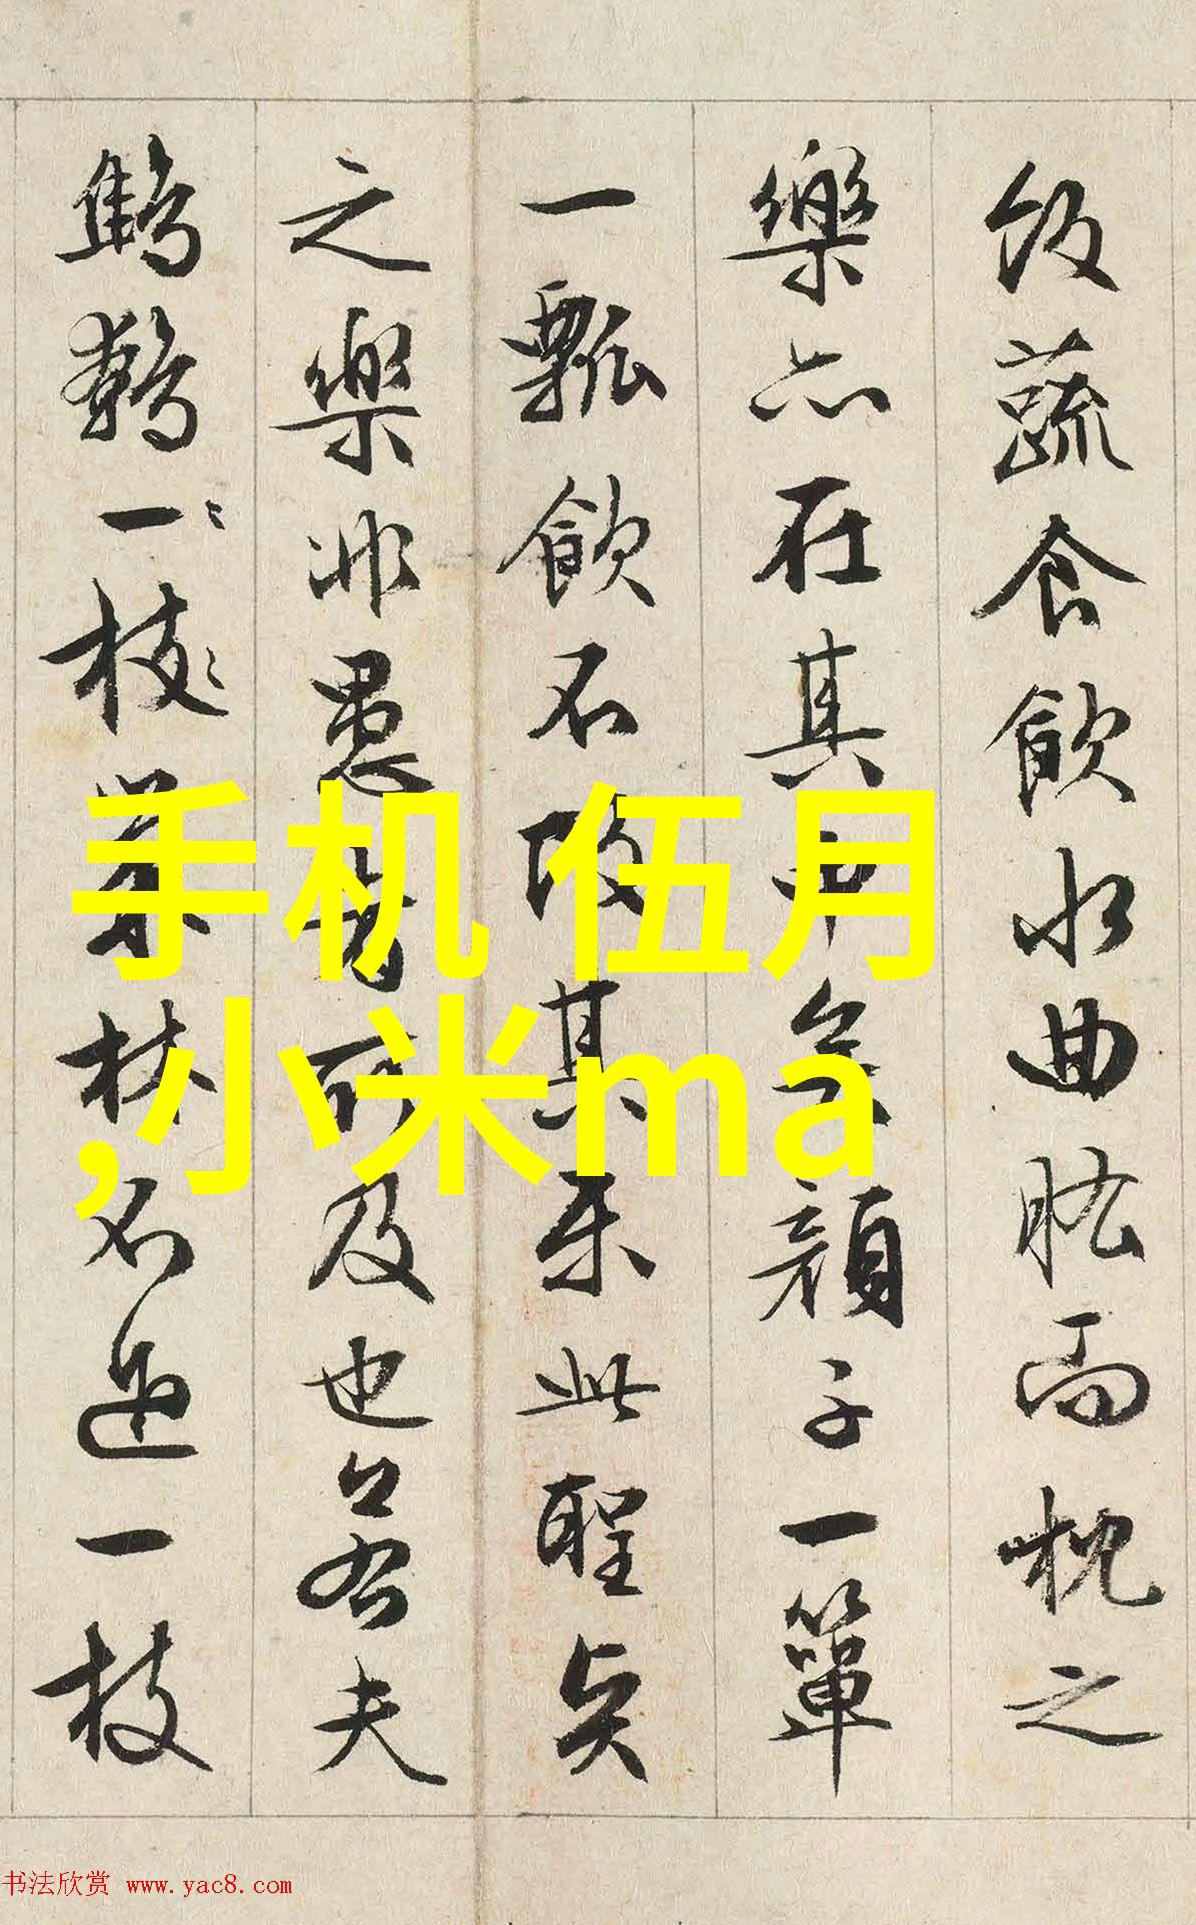 飯蔬食飲水曲肱而枕之
樂亦在其中矣顏子一簞
一瓢飲不改其樂此聖矣
之樂非愚者所及也君夫
鷦鷯一〻枝〻巢林不過一枝
手机 伍月
,小米ma
书法欣赏 www.yac8.com